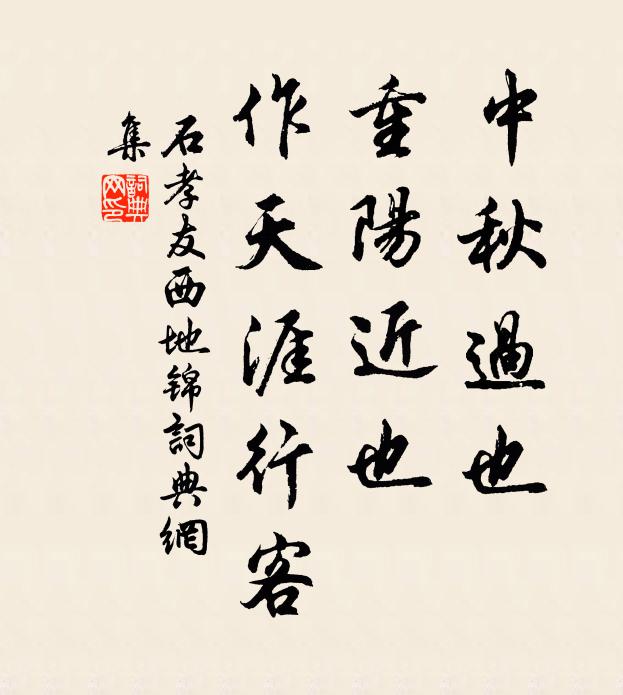 中秋過也
重陽近也
作天涯行客
石孝友西地錦詞典網
集
詞典
网印